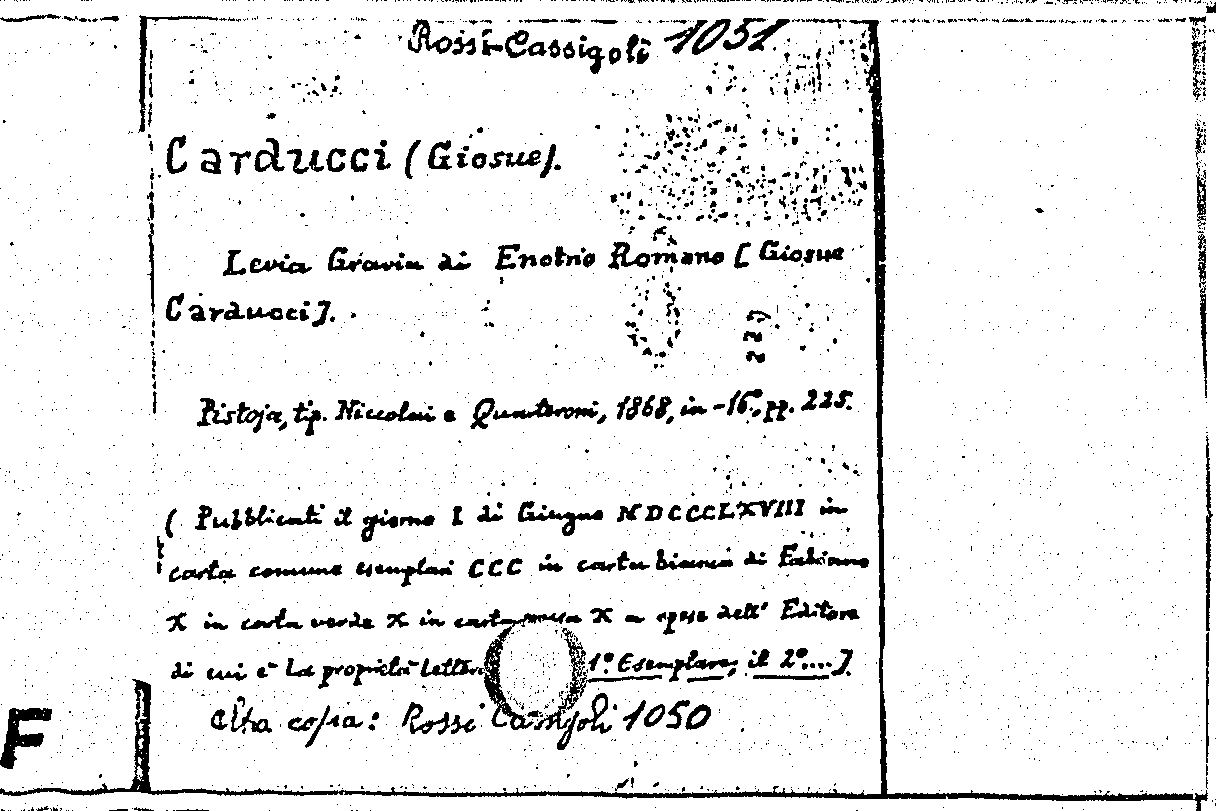 Rossi-Cassigoli 1051.
Carducci (Giosue).
Levia Gravia di Enotrio Romano [Giosue
Carducci].
227
Pistoja, tip. Niccolai e Quarteroni, 1868, in -16°, pp. 225.
( Pubblicati il giorno I di Giugno MDCCCLXVIII in
carta comune esemplari CCC in carta bianca di Fabriano
X in carta verde X in carta rossa X a spese dell' Editore
di cui è la proprietà letter. 1° Esemplare; il 2°....].
Altra copia: Rossi Cassigoli 1050
F